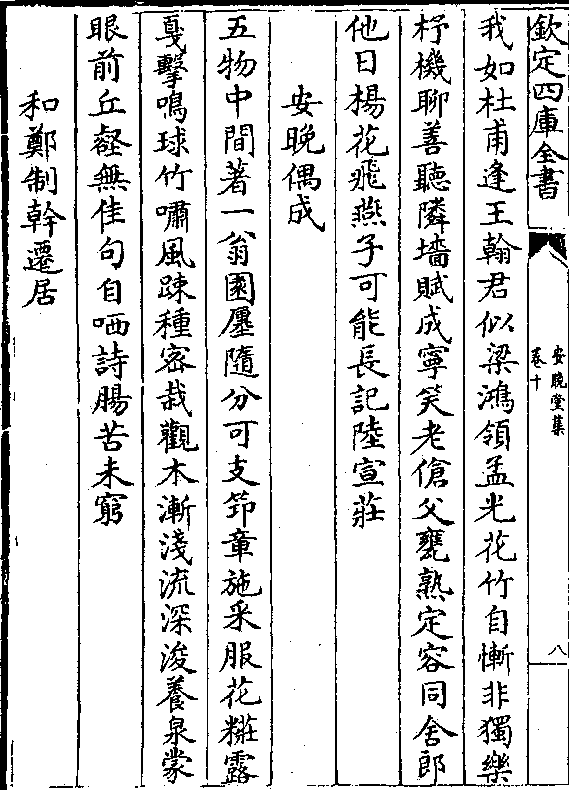 欽定四庫全書
安晚堂集
卷十
八
我如杜甫逢王翰君似梁鴻領孟光花竹自慚非獨樂
杼機聊善聽隣墻賦成寧笑老傖父甕熟定容同舍郎
他日楊花飛燕子可能長記陸宣莊
安晚偶成
五物中間著一翁園廛隨分可支筇章施采服花糚露
戛擊鳴球竹嘯風踈種宻栽觀木漸淺流深浚養泉蒙
眼前丘壑無佳句自哂詩腸苦未窮
和鄭制幹遷居